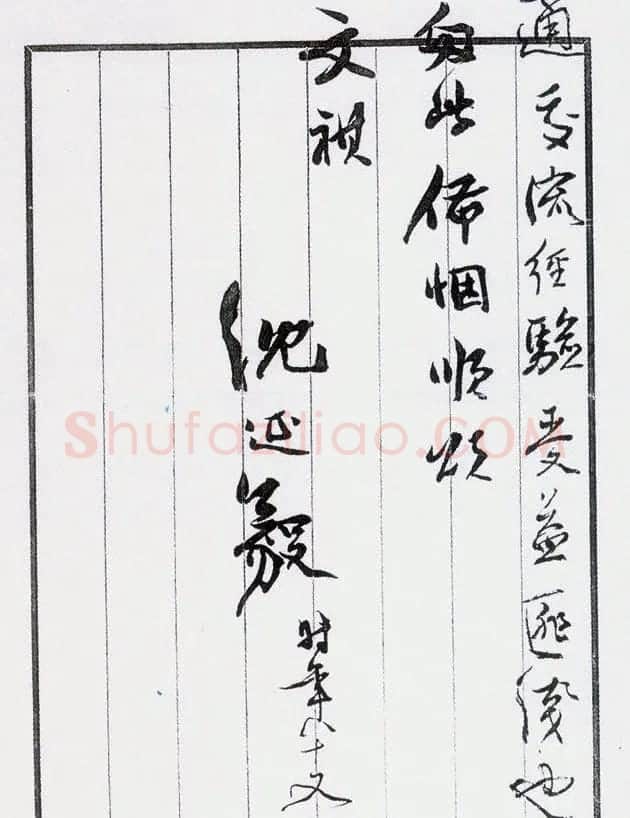 通交流經驗受益匪淺也
匆此佈悃順頌
文祺
沈延毅
时年八十又
Shufaziliao.COM